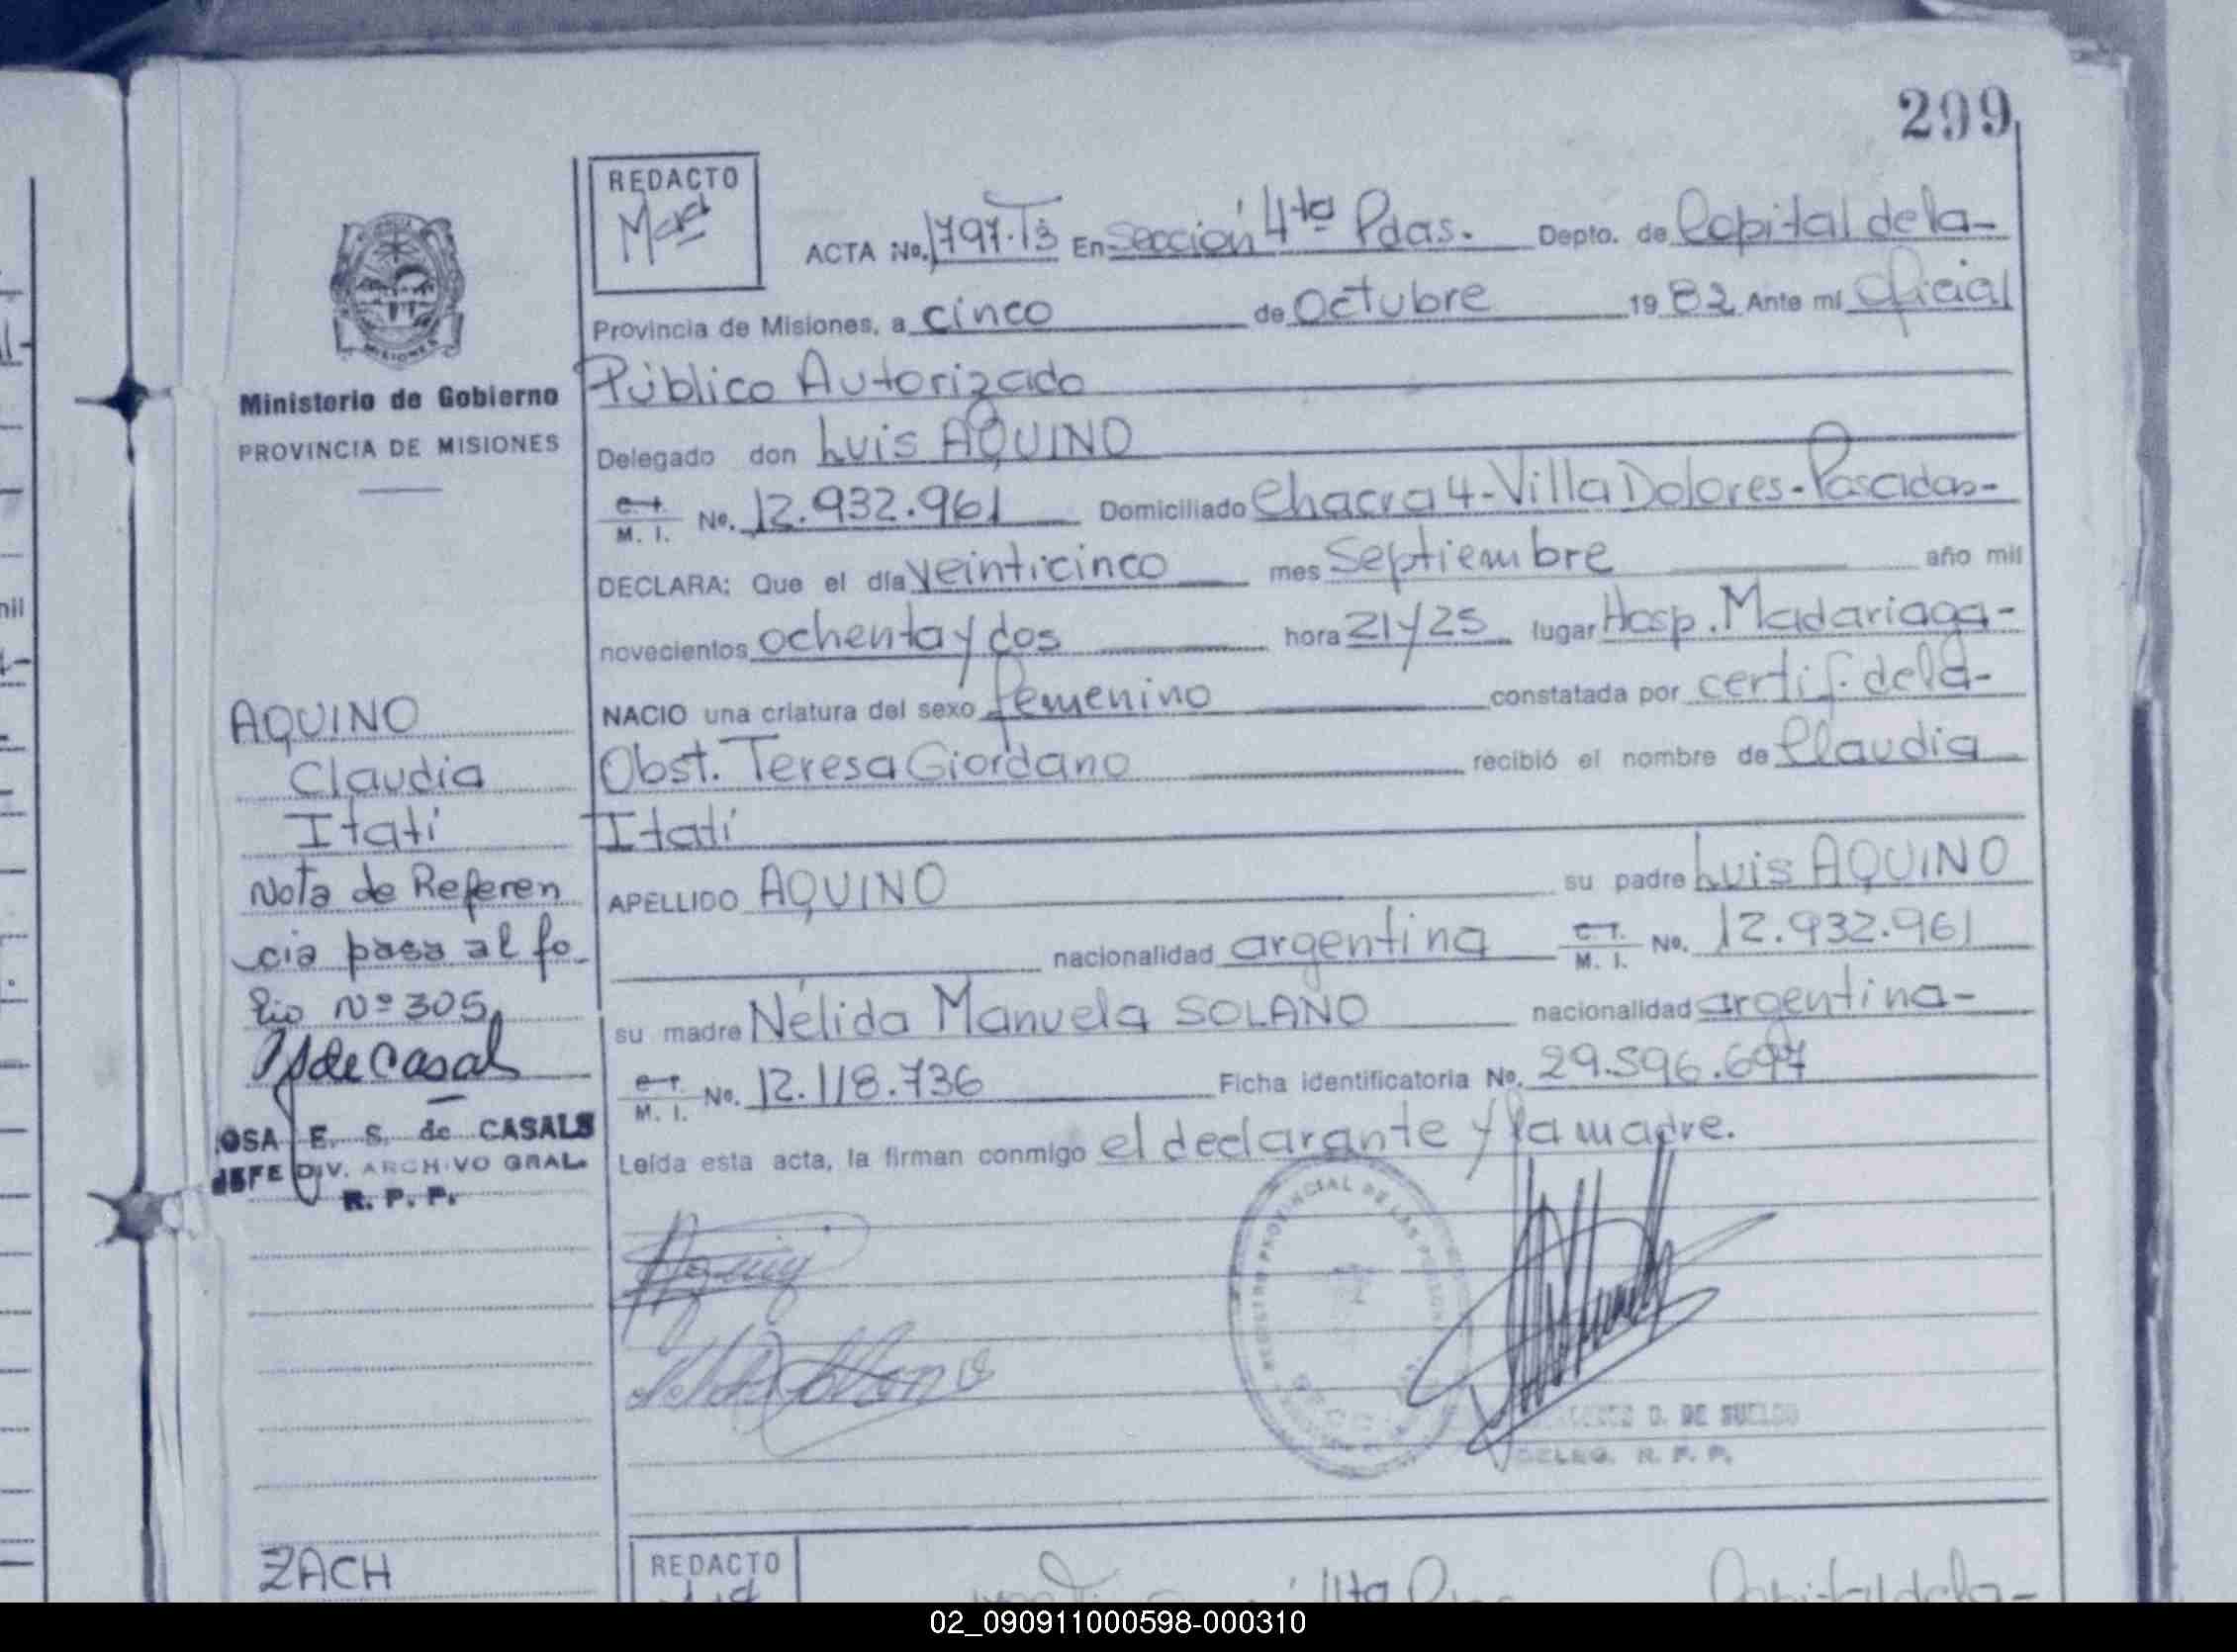 299
REDACTO
ACTA No. 1797.T3 En Sección 4ta Pdas. Depto. de Capital de la-
Provincia de Misiones, a cinco de Octubre 19 82 Ante mí Oficial
Público Autorizado
Delegado don Luis AQUINO
M. I. No. 12.932.961 Domiciliado Chacra 4-Villa Dolores-Posadas-
DECLARA: Que el día veinticinco mes Septiembre año mil
novecientos ochenta y dos hora 21y25 lugar Hosp. Madariaga-
NACIO una criatura del sexo femenino constatada por certif. de la-
Obst. Teresa Giordano recibió el nombre de Claudia
Itatí
APELLIDO AQUINO su padre Luis AQUINO
nacionalidad argentina C.I. M. I. No. 12.932.961
su madre Nélida Manuela SOLANO nacionalidad argentina-
M. I. No. 12.118.736 Ficha identificatoria No. 29.596.697
Leída esta acta, la firman conmigo el declarante y la madre.
REGISTRO PROVINCIAL DE LAS PERSONAS
D. DE SUELDO
DELEG. R. P. P.
MISIONES
Ministerio de Gobierno
PROVINCIA DE MISIONES
AQUINO
Claudia
Itatí
Nota de Referen
cia pasa al fo-
lio Nº 305
de Casals
OSA E. S. de CASALS
JEFE DIV. ARCHIVO GRAL.
R. P. P.
ZACH
REDACTO
4ta Capital de la-
02_090911000598-000310